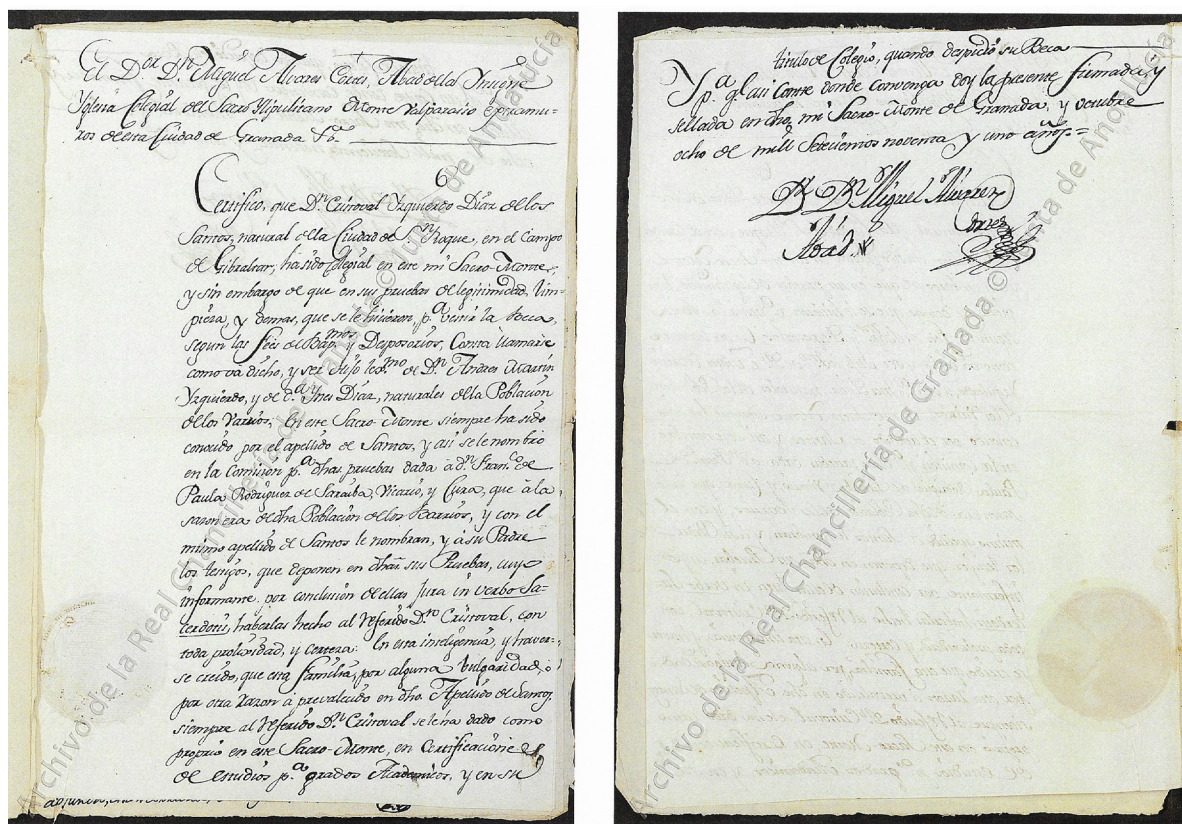 El D.or D.n Miguel Alvarez Cortes, Abad de la Insigne
Yglesia Colegial del Sacro Ylipulitano Monte Valparaiso Extramu-
ros de esta Ciudad de Granada &c.a
6
Certifico, que D.n Cristoval Yzquierdo Diaz de los
Santos, natural de la Ciudad de S.n Roque, en el Campo
de Gibraltar, ha sido Colegial en este mi Sacro-Monte,
y sin embargo de que en sus pruebas de legitimidad, lim-
pieza, y demas, que se le hicieron, p.a vestir la Beca,
segun las fees de Bap.mos y Desposorios, Consta llamarse
como va dicho, y ser Hijo leg.mo de D.n Andres Martin
Yzquierdo, y de D.a Ynes Diaz, naturales de la Poblacion
de los Varrios, En este Sacro-Monte siempre ha sido
conocido por el apellido de Santos, y asi se le nombró
en la Comision p.a dhas pruebas dada à d.n Fran.co de
Paula Rodriguez de Sarauba, Vicario, y Cura, que à la
sazon era de dha Poblacion de los Barrios, y con el
mismo apellido de Santos le nombran, y à su Padre
los testigos, que deponen en dhas sus Pruebas, cuyo
informante por conclusion de ellas jura in verbo Sa-
cerdotis, haberlas hecho al referido D.n Cristoval, con
toda prolixidad, y certeza: En esta inteligencia, y haver-
se creido, que esta familia, por alguna vulgaridad, ò
por otra razon à prevalecido en dho. Apellido de Santos,
siempre al referido D.n Cristoval se le ha dado como
proprio en este Sacro-Monte, en Certificaciones
de estudios p.a grados Academicos, y en su
titulo de Colegio, quando despidió su Beca
Y p.a q.e asi conste donde convenga doy la presente firmada, y
sellada en dho. mi Sacro-Monte de Granada, y octubre
ocho de mill Setecientos noventa y uno años.=
D.r D.n Miguel Alvarez
Cortes
Abad.
Archivo de la Real Chancillería de Granada © Junta de Andalucía
Archivo de la Real Chancillería de Granada © Junta de Andalucía